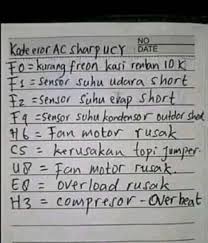 NO
DATE
Kode eror AC sharp ucy
F0 = kurang freon kasi renban 10 K
F1 = sensor suhu udara short
F2 = sensor suhu evap short
F4 = sensor suhu kondensor outdor short
H6 = Fan motor rusak
C5 = kerusakan topi jumper.
U8 = Fan motor rusak.
E0 = overload rusak
H3 = compresor - Over beat